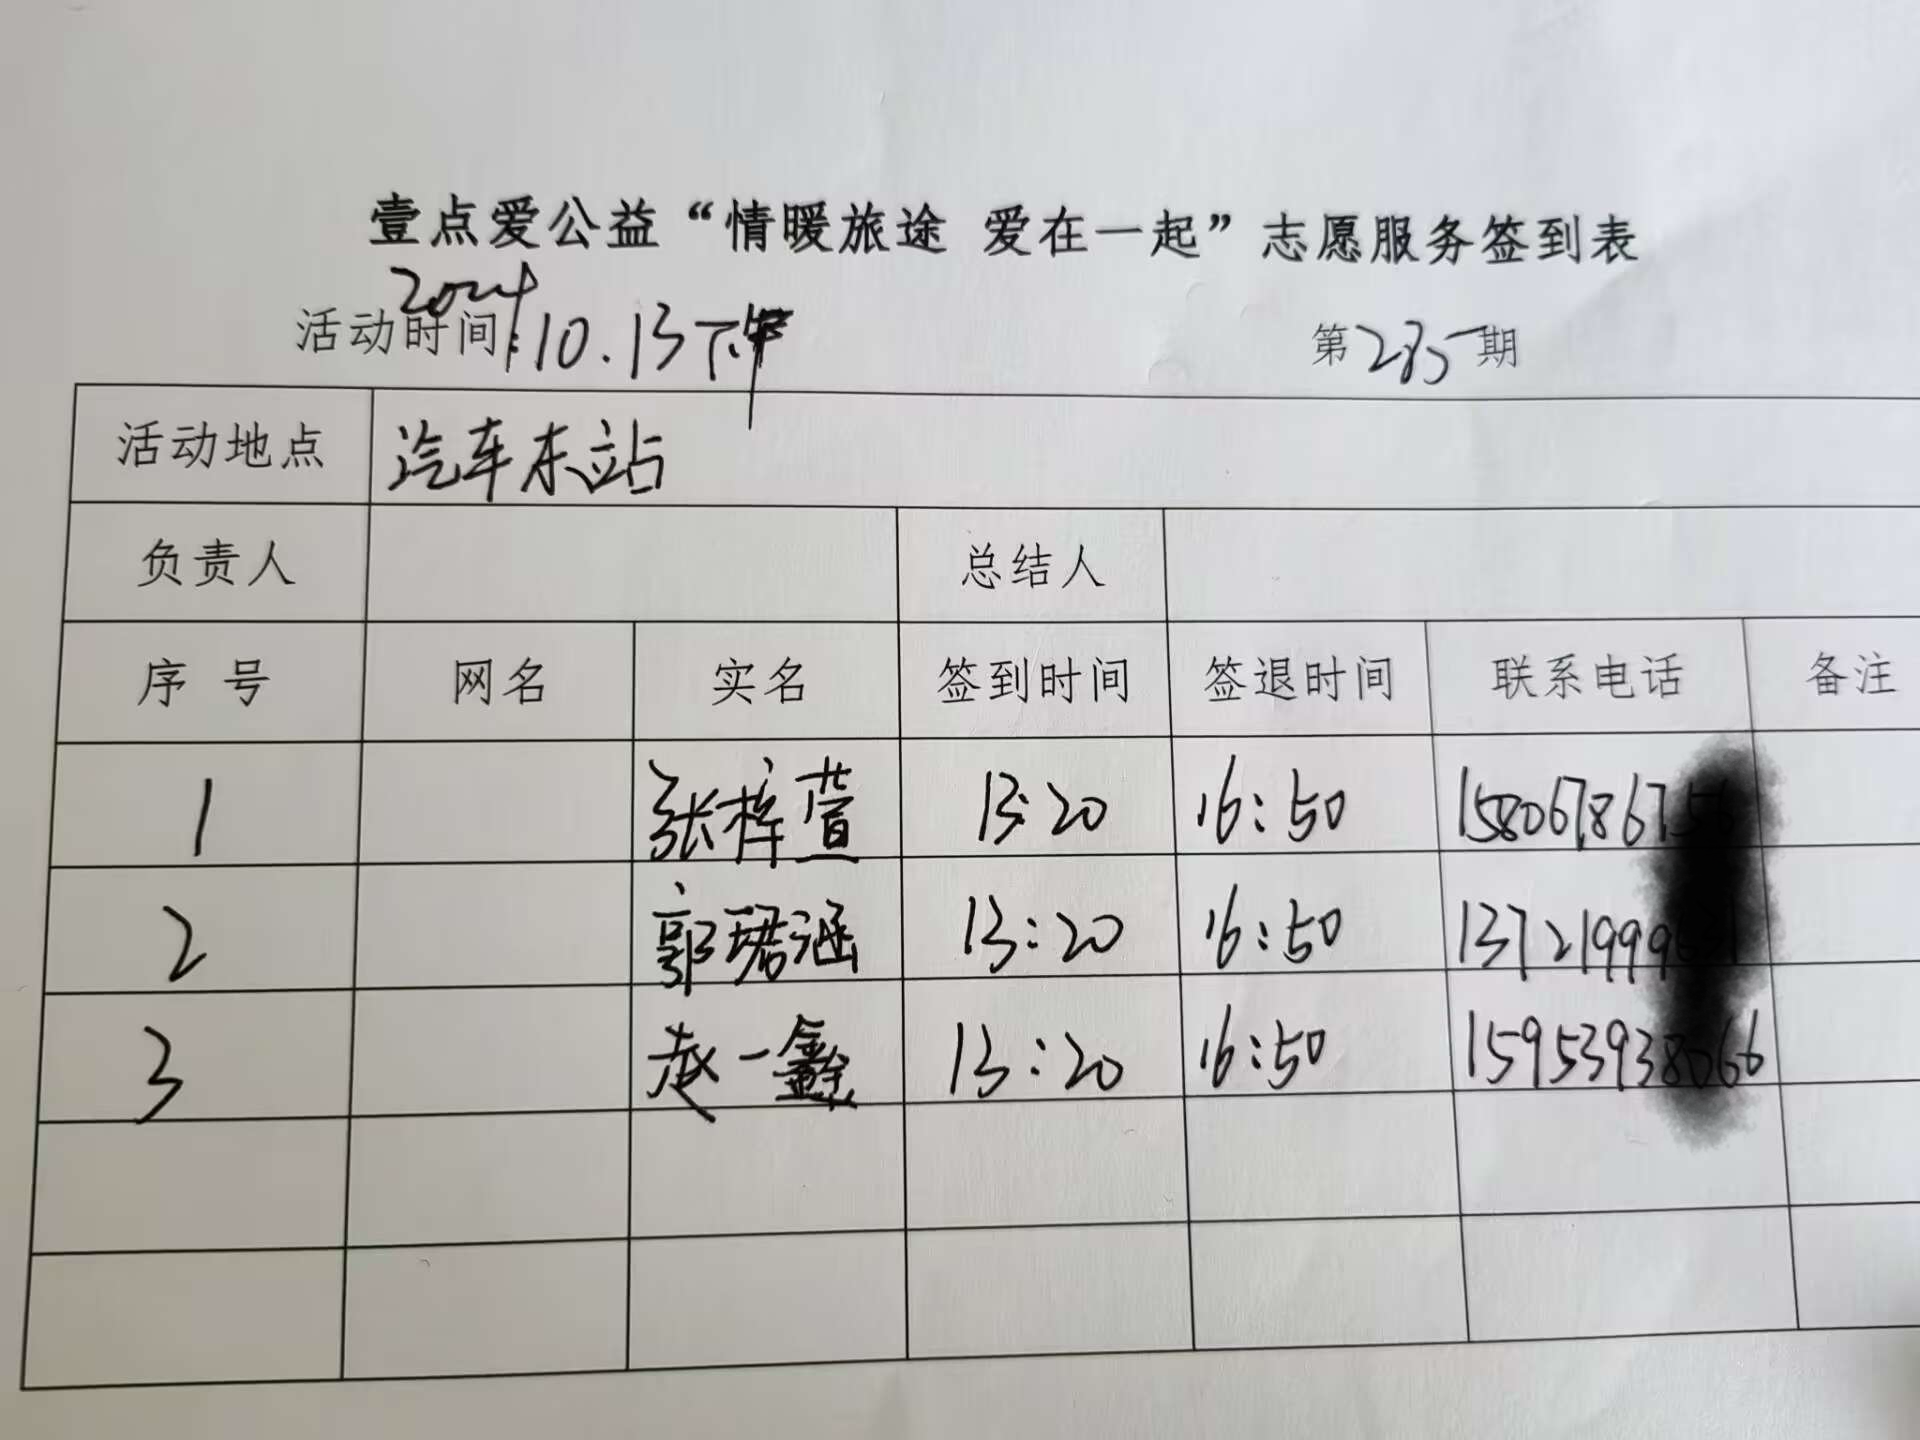 壹点爱公益“情暖旅途 爱在一起”志愿服务签到表
活动时间:2024 10.13下午 第285期
活动地点 汽车东站
负责人 总结人
序号 网名 实名 签到时间 签退时间 联系电话 备注
1 张梓萱 13:20 16:50
2 郭珺涵 13:20 16:50
3 赵一鑫 13:20 16:50